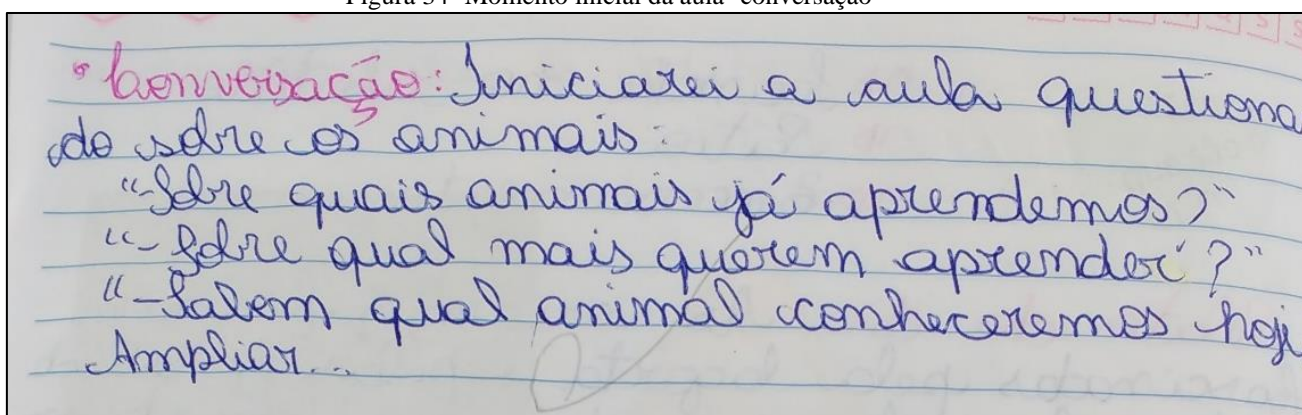 Figura 34- Momento inicial da aula- conversação
• Conversação: Iniciarei a aula questiona
do sobre os animais:
"-Sobre quais animais já aprendemos?"
"-Sobre qual mais querem aprender?"
"-Sabem qual animal conheceremos hoje
Ampliar...